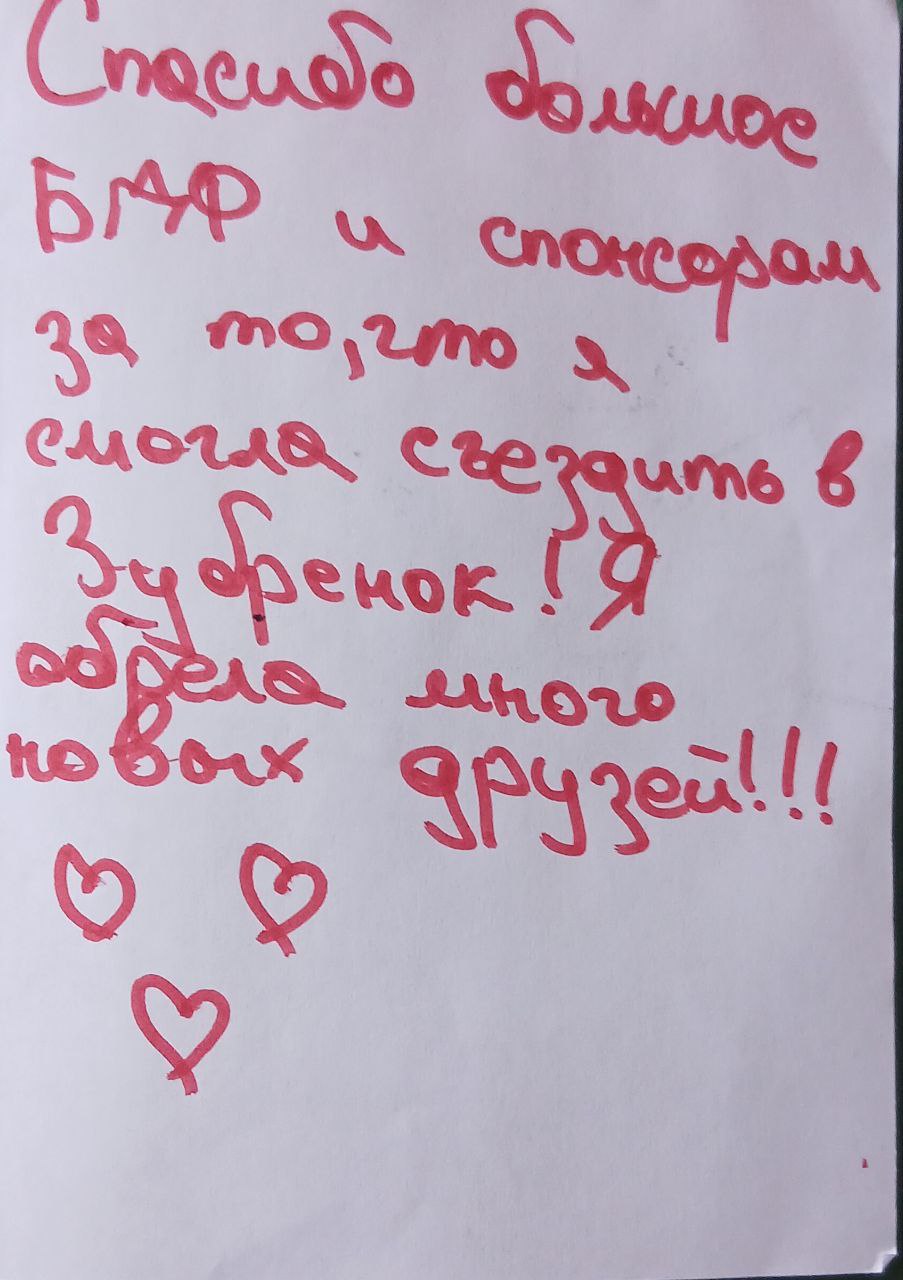 Спасибо большое
БДФ и спонсорам
за то, что я
смогла съездить в
Зубренок! Я
обрела много
новых друзей!!!